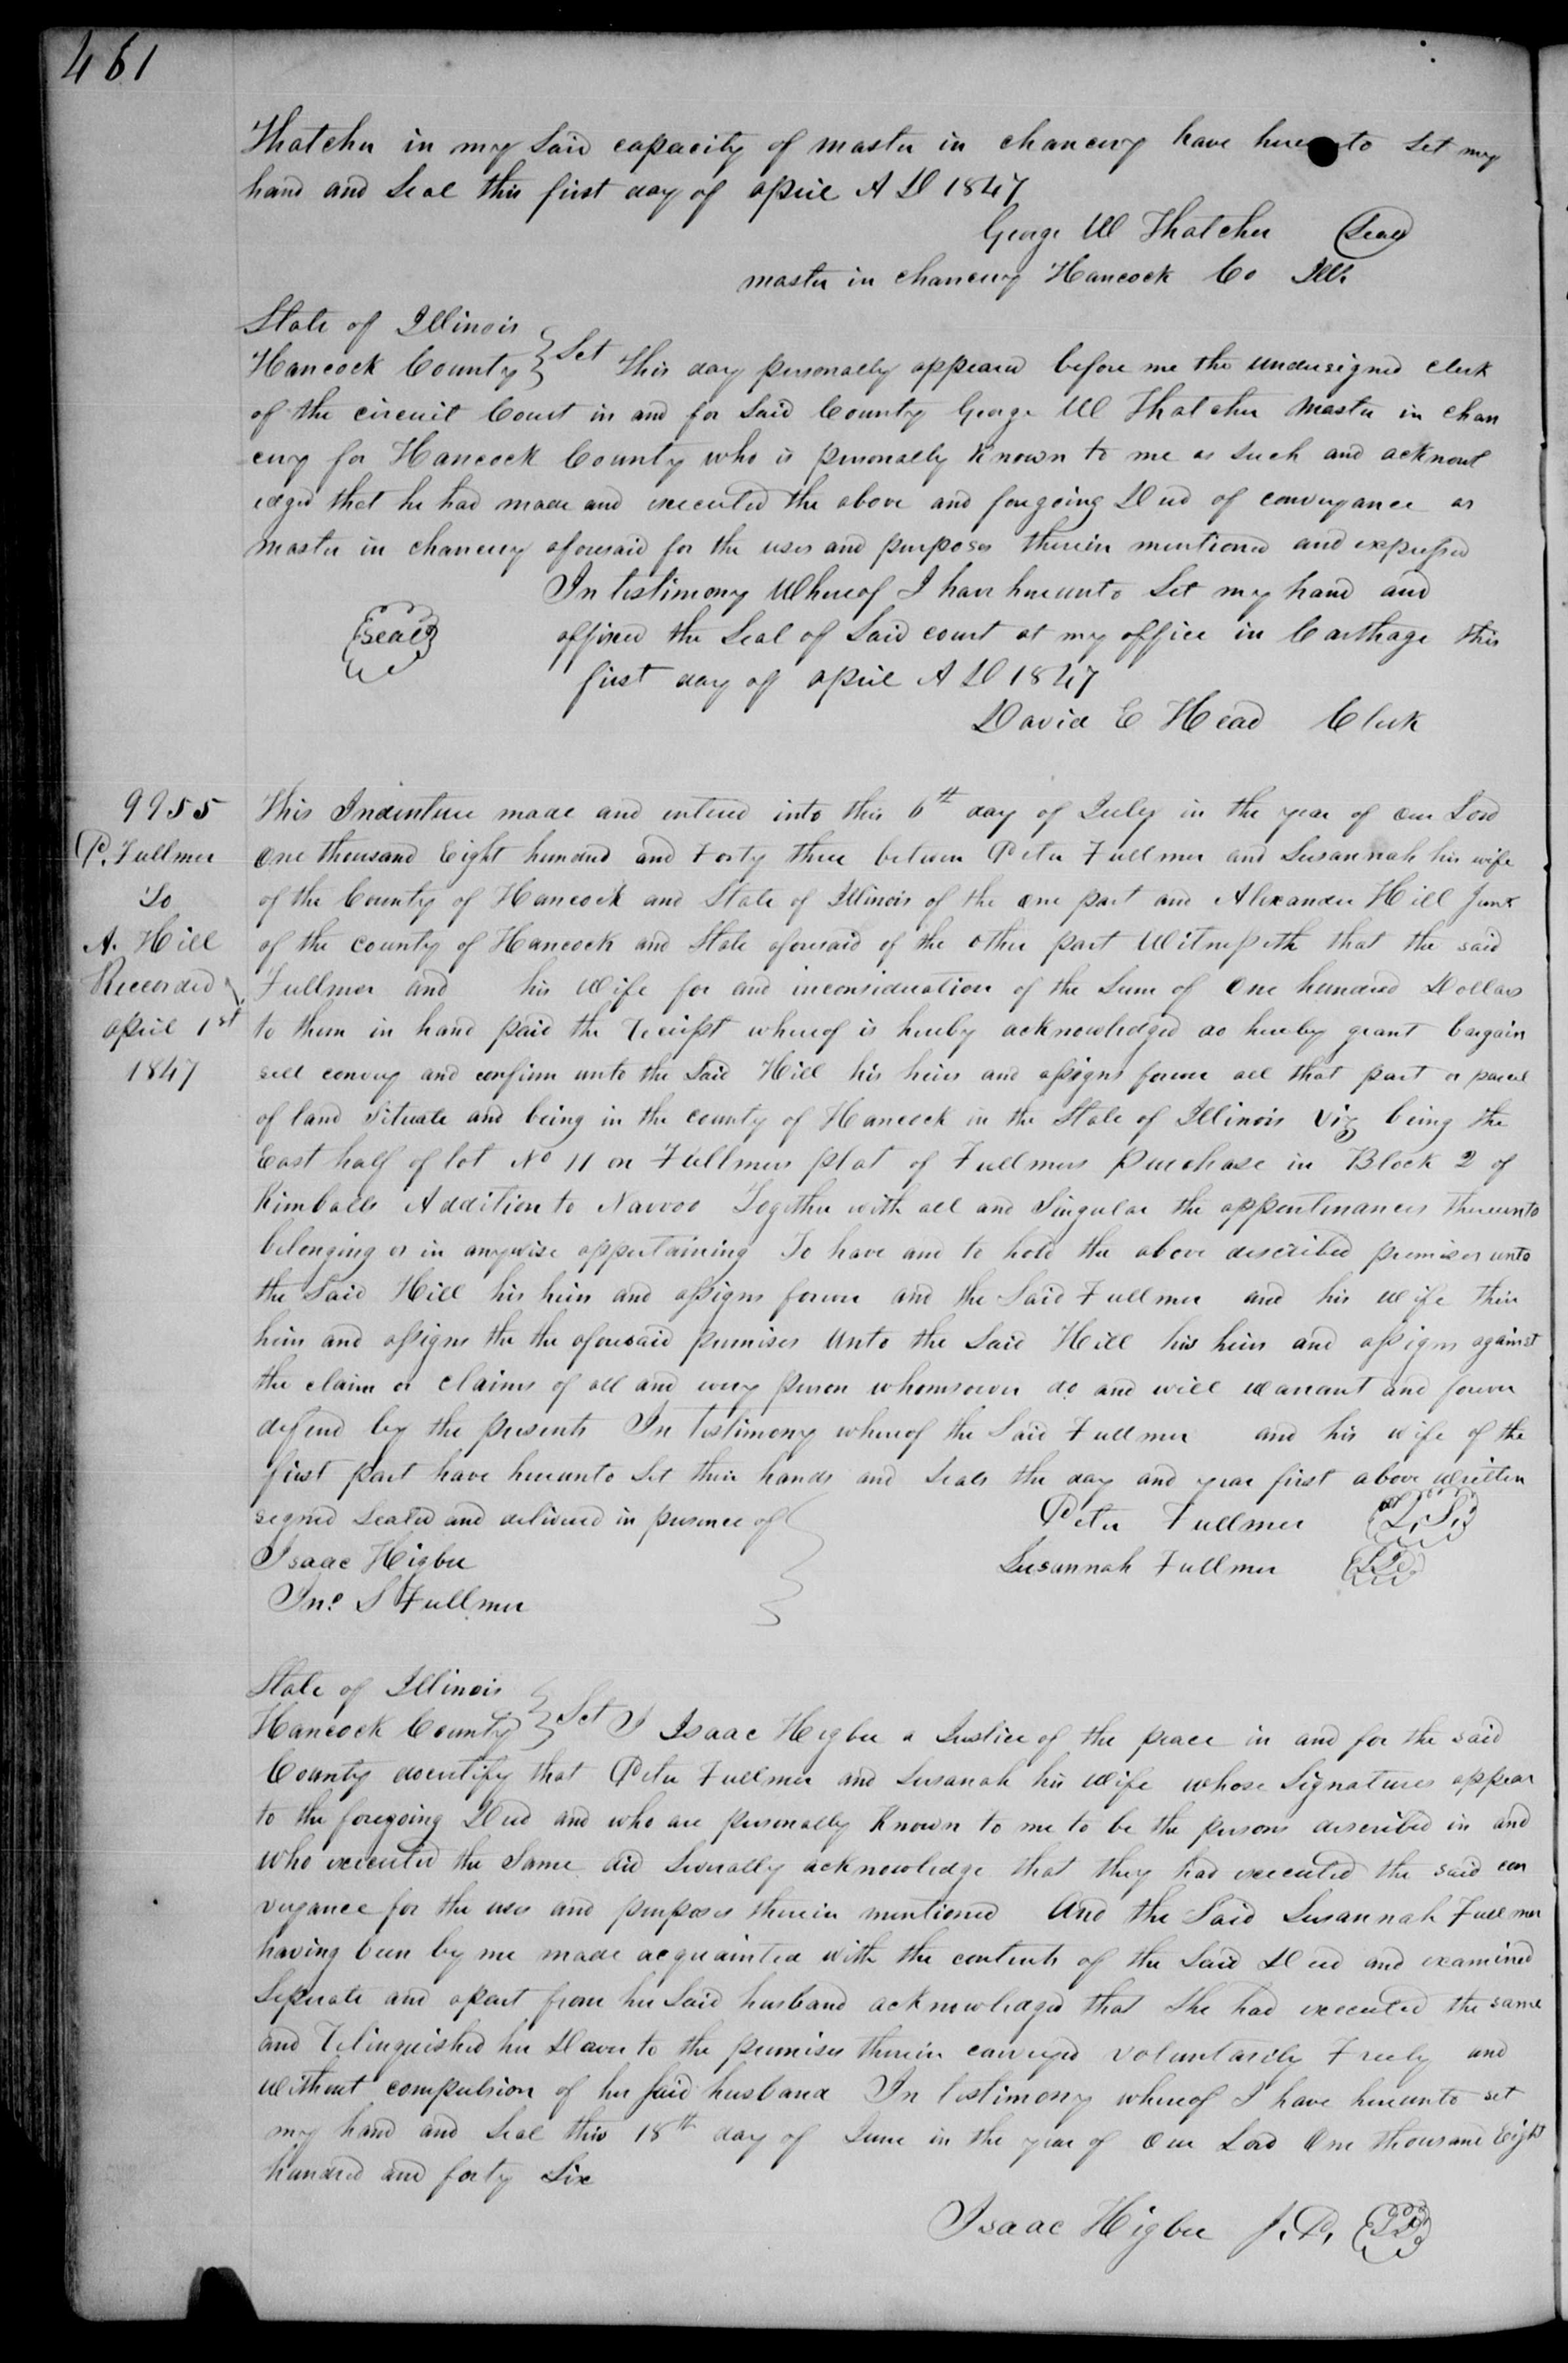 461
Thatcher in my Said capacity of master in chancery have hereunto Set my
hand and Seal this first day of april A D 1847
George W Thatcher (Seal)
master in chancery Hancock Co Ills
State of Illinois
Hancock County } Sct This day personally appeared before me the undersigned clerk
of the circuit Court in and for Said County George W Thatcher Master in chan
cery for Hancock County who is personally Known to me as Such and acknowl
edged that he had made and executed the above and foregoing Deed of conveyance as
Master in chancery aforesaid for the uses and purposes therein mentioned and expressed
In testimony Whereof I have hereunto Set my hand and
(seal) affixed the Seal of Said court at my office in Carthage this
first day of april A D 1847
David E Head Clerk
9955
P. Fullmer
To
A. Hill
Recorded
april 1st
1847
This Indenture made and entered into this 6th day of July in the year of our Lord
One thousand Eight hundred and Forty three between Peter Fullmer and Susannah his wife
of the County of Hancock and State of Illinois of the one part and Alexander Hill Junr
of the county of Hancock and State aforesaid of the other part Witnesseth that the said
Fullmer and his Wife for and inconsideration of the Sum of One hundred Dollars
to them in hand paid the receipt whereof is hereby acknowledged do hereby grant bargain
sell convey and confirm unto the Said Hill his heirs and assigns forever all that part or parcel
of land Situate and being in the county of Hancock in the State of Illinois Viz being the
East half of lot No 11 on Fullmers plat of Fullmers purchase in Block 2 of
Kimballs Addition to Navvoo Together with all and Singular the appertenances thereunto
belonging or in anywise appertaining To have and to hold the above described premises unto
the Said Hill his heirs and assigns forever and the Said Fullmer and his Wife their
heirs and assigns the the aforesaid premises Unto the Said Hill his heirs and assigns against
the claim or claims of all and every person whomsoever do and will warrant and forever
defend by the presents In Testimony whereof the Said Fullmer and his wife of the
first part have hereunto Set their hands and Seals the day and year first above written
signed Sealed and delivered in presence of } Peter Fullmer (L.S.)
Isaac Higbee Susannah Fullmer (LS)
Jno. S Fullmer
State of Illinois
Hancock County } Sct I Isaac Higbee a Justice of the peace in and for the said
County docertify that Peter Fullmer and Susanah his Wife whose Signatures appear
to the foregoing Deed and who are personally Known to me to be the persons described in and
who executed the Same did Severally acknowledge that they had executed the said con
veyance for the uses and purposes therein mentioned And the Said Susannah Fullmer
having been by me made acquainted with the contents of the Said Deed and examined
Seperate and apart from her Said husband acknowledged that She had executed the same
and relinquished her Dower to the premises therein conveyed voluntarily Freely and
without compulsion of her Said husband In testimony whereof I have hereunto set
my hand and Seal this 18th day of June in the year of Our Lord One thousand Eight
hundred and forty Six
Isaac Higbee J. P. (LS)